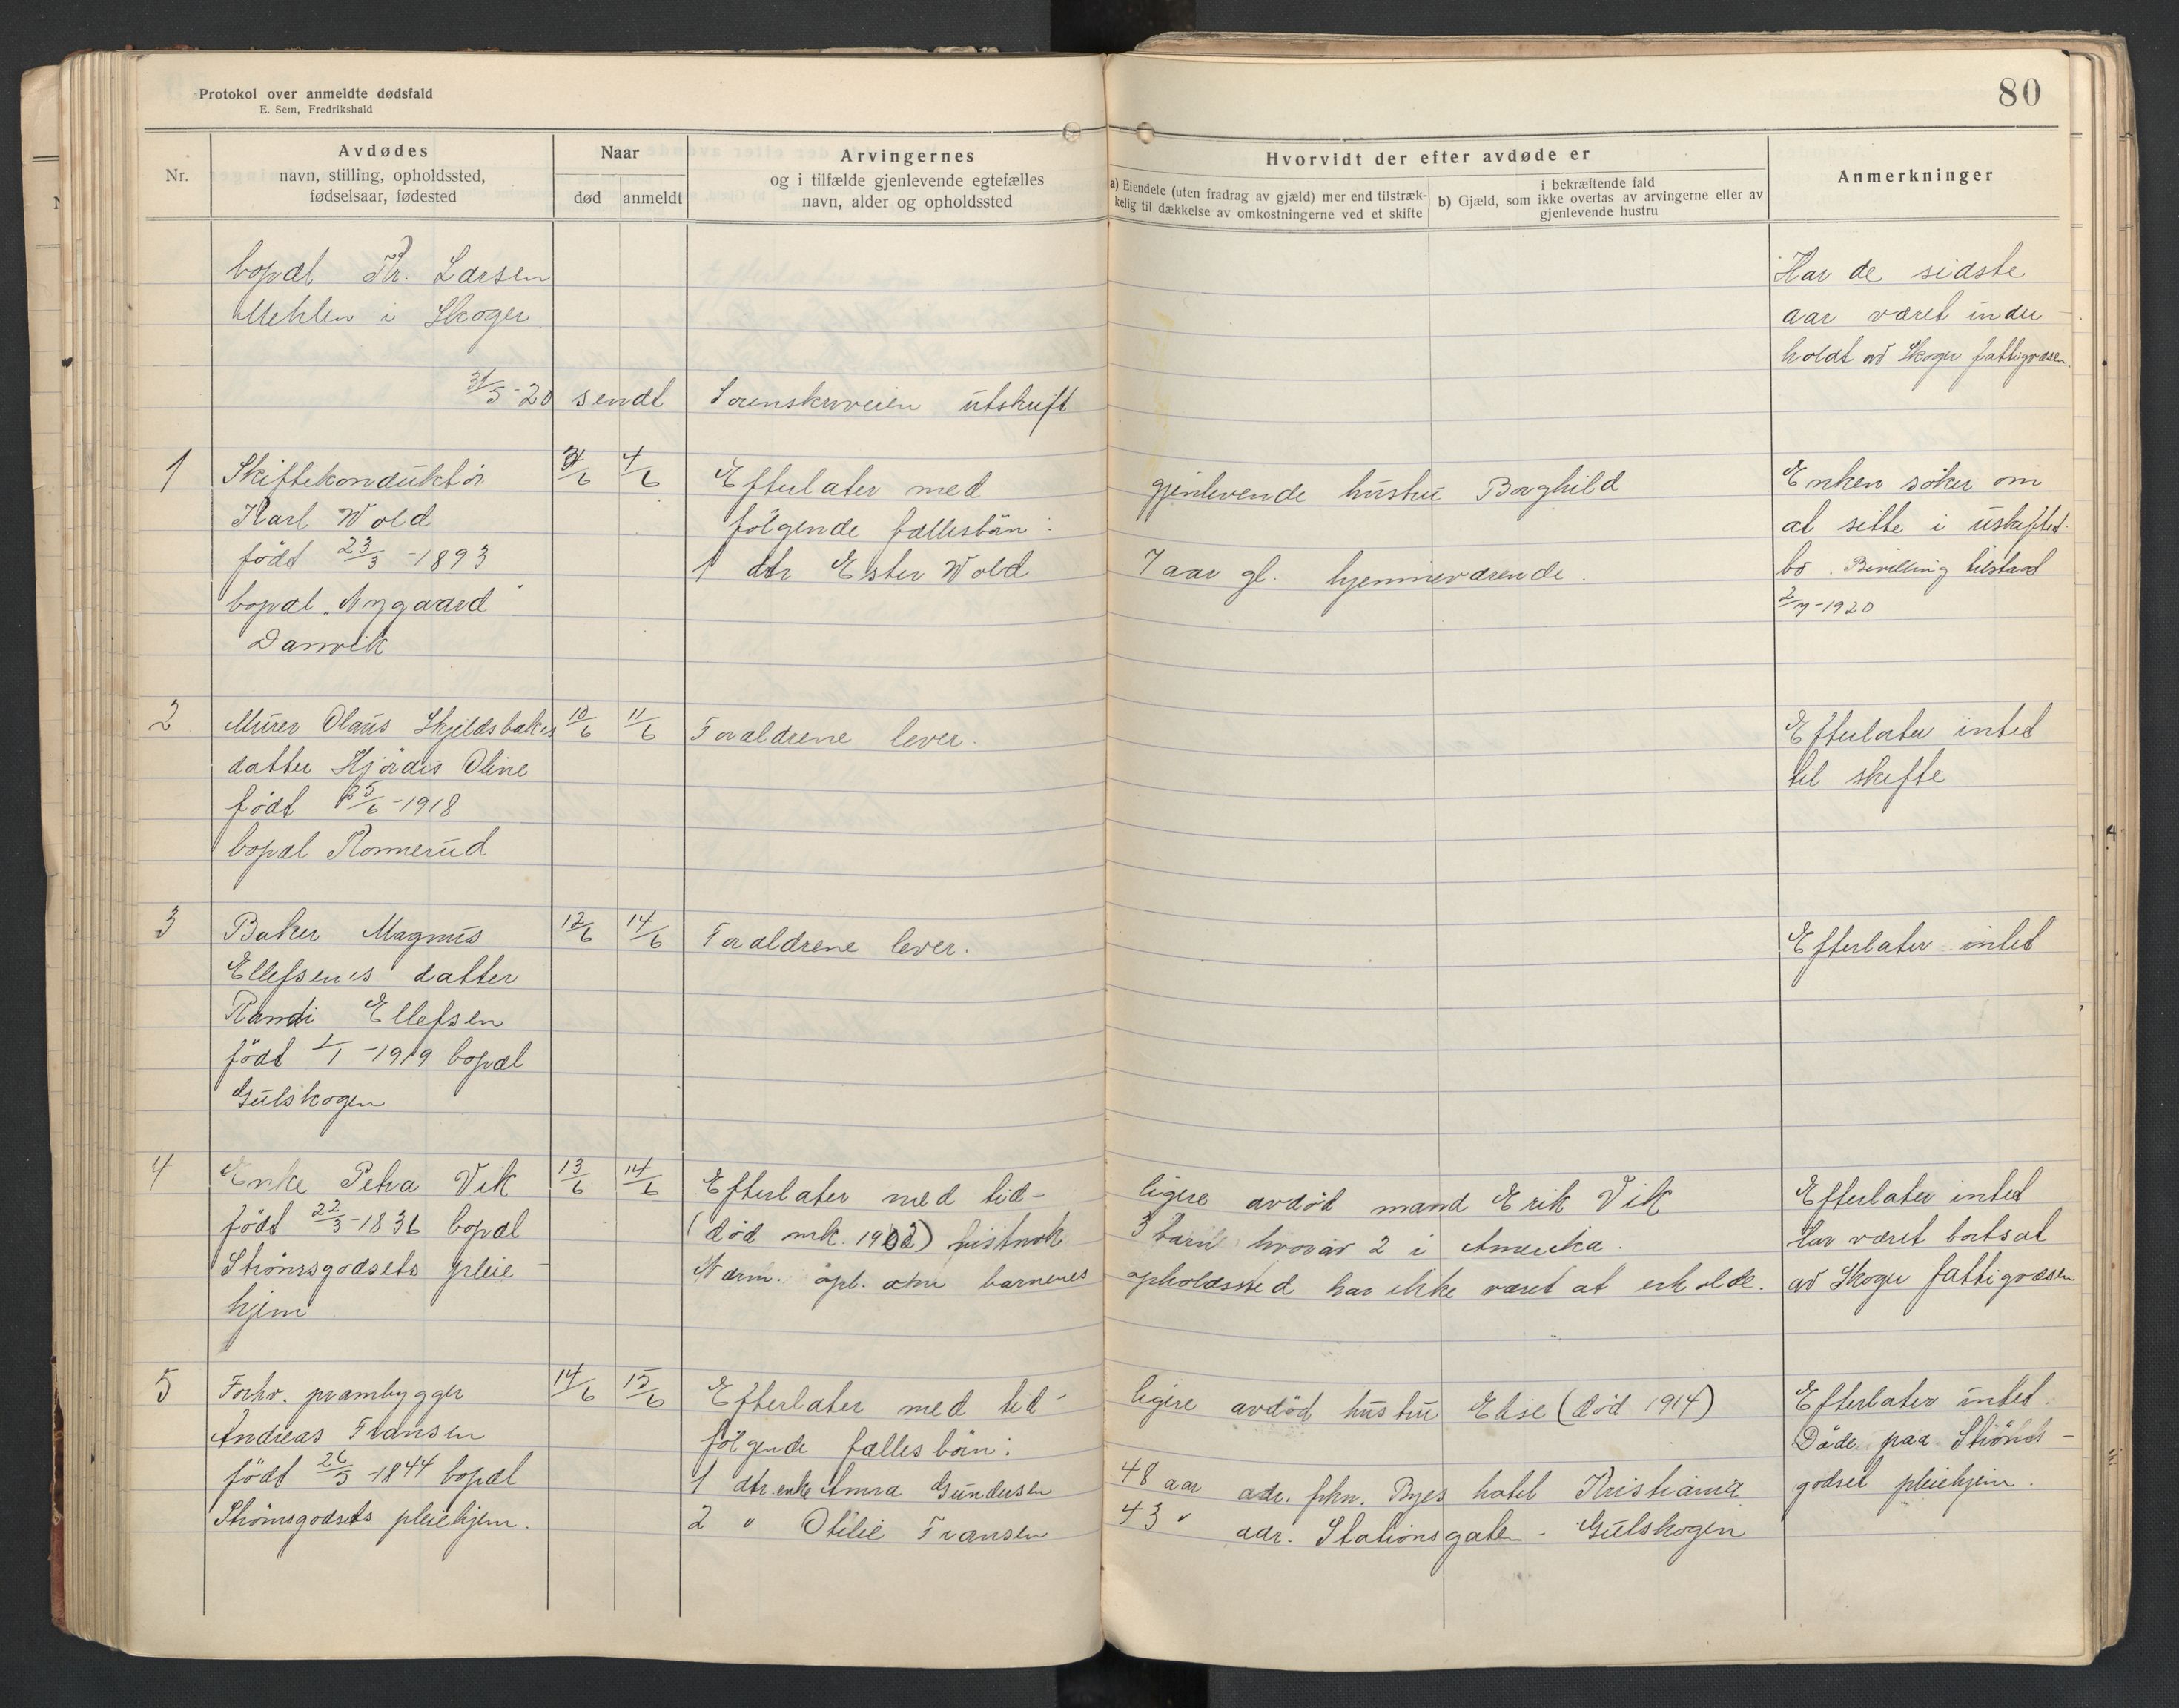 Protokol over anmeldte dødsfald
E. Sem, Fredrikshald
80
Nr.
Avdødes
navn, stilling, opholdssted,
fødselsaar, fødested
Naar
død
anmeldt
Arvingernes
og i tilfælde gjenlevende egtefælles
navn, alder og opholdssted
Hvorvidt der efter avdøde er
a) Eiendele (uten fradrag av gjæld) mer end tilstræk-
kelig til dækkelse av omkostningerne ved et skifte
i bekræftende fald
b) Gjæld, som ikke overtas av arvingerne eller av
gjenlevende hustru
Anmerkninger
bopæl Kr. Larsen
Mehlen i Skoger
Har de sidste
aar været under
holdt av Skoger fattigvæsen
31/5-20 sendt Sorenskriveren utskrift
1 Skiftekonduktør
Karl Wold
født 23/3-1893
bopæl "Nygaard"
Danvik
3/6 4/6
Efterlater med gjenlevende hustru Borghild
følgende fællesbørn:
1 dtr Ester Wold 7 aar gl. hjemmeværende.
Enken søker om
at sitte i uskiftet
bo. Bevilling tilstaat
2/7-1920
2 Murer Olaus Skjeldsbækes
datter Hjørdis Oline
født 25/6-1918
bopæl Konnerud
10/6 11/6
Forældrene lever.
Efterlater intet
til skifte
3 Baker Magnus
Ellefsen's datter
Randi Ellefsen
født 1/1-1919 bopæl
Gulskogen
12/6 14/6
Forældrene lever.
Efterlater intet
4 Enke Petra Vik
født 22/3-1836 bopæl
Strømsgodsets pleie-
hjem
13/6 14/6
Efterlater med tid- ligere avdød mand Erik Vik
(død mk. 1902) vistnok 3 barn hvorav 2 i Amerika.
Nærm. opl. om barnenes opholdssted har ikke været at erholde.
Efterlater intet
har været bortsat
av Skoger fattigvæsen
5 Forhv. prambygger
Andreas Fransen
født 26/5-1844 bopæl
Strømsgodsets pleiehjem.
14/6 15/6
Efterlater med tid- ligere avdød hustru Elise (død 1914)
følgende fælles børn:
1 dtr. enke Anna Gundersen 48 aar adr. frkn. Byes hotel Kristiania
2 " Otilie Fransen 43 " adr. Stationsgaten - Gulskogen
Efterlater intet.
Døde paa Strøms-
godset pleiehjem.